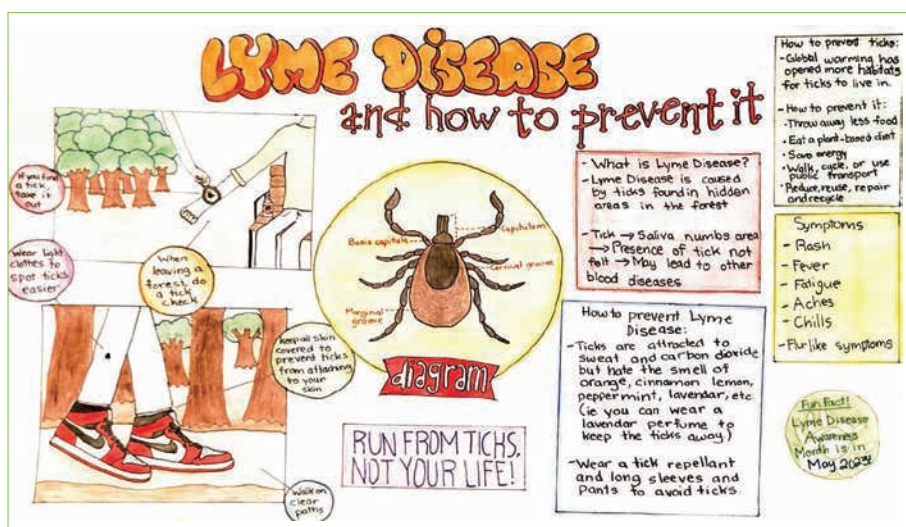 LYME DISEASE
and how to prevent it
If you find
a tick,
take it
out
Wear light
clothes to
spot ticks
easier
When
leaving a
forest, do
a tick
check
Keep all skin
covered to
prevent ticks
from attaching
to your
skin
Walk on
clear
paths
Basis capituli
Capitulum
Cervical groove
Marginal
groove
diagram
RUN FROM TICKS,
NOT YOUR LIFE!
- What is Lyme Disease?
- Lyme Disease is caused
by ticks found in hidden
areas in the forest
- Tick → Saliva numbs area
→ Presence of tick not
felt → May lead to other
blood diseases
How to prevent Lyme
Disease:
- Ticks are attracted to
sweat and carbon dioxide
but hate the smell of
orange, cinnamon lemon,
peppermint, lavendar, etc
(ie you can wear a
lavendar perfume to
keep the ticks away)
- Wear a tick repellant
and long sleeves and
pants to avoid ticks.
How to prevent ticks:
- Global warming has
opened more habitats
for ticks to live in.
- How to prevent it:
- Throw away less food
• Eat a plant-based diet
• Save energy
• Walk, cycle, or use
public transport
• Reduce, reuse, repair
and recycle
Symptoms
- Rash
- Fever
- Fatigue
- Aches
- Chills
- Flu-like symptoms
Fun Fact!
Lyme Disease
Awareness
Month is in
May 2023!